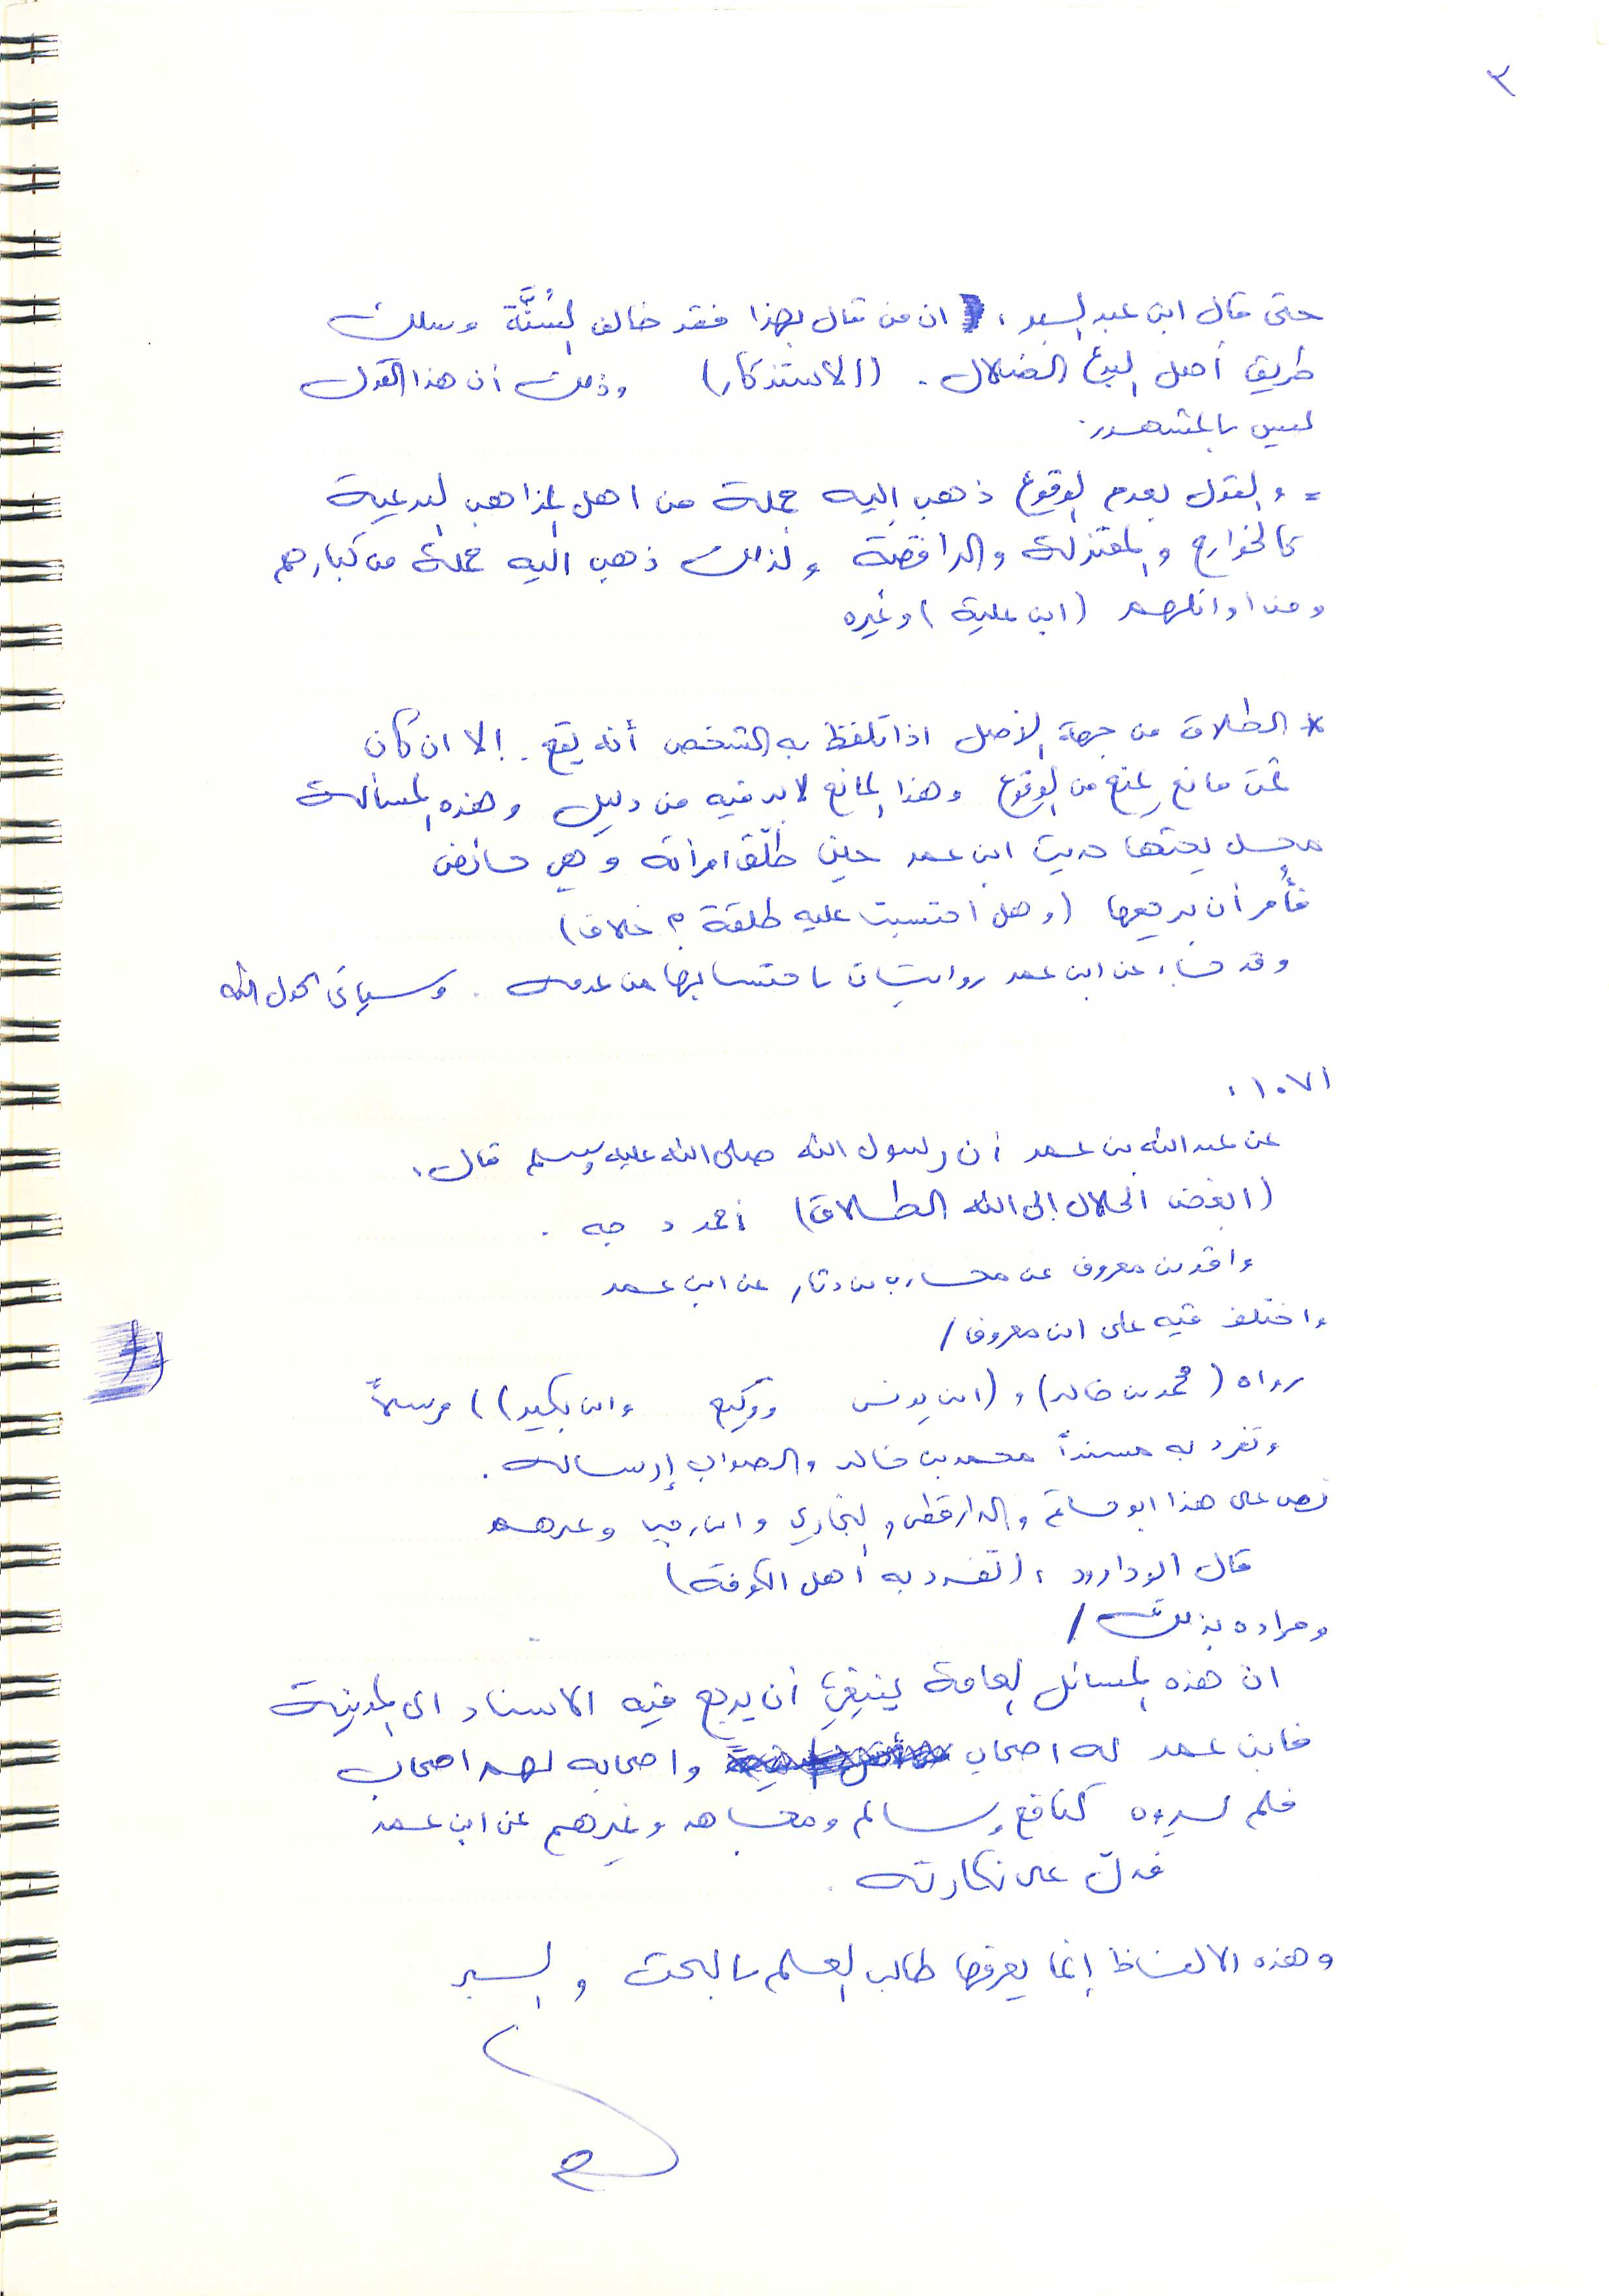 ٣
حتى قال ابن عبد البر : ان من قال بهذا فقد خالف السُّنَّة وسلك
طريق أهل البدع الضلال . (الاستذكار) وذلك أن هذا القول
ليس بالمشهور .
= والقول بعدم الوقوع ذهب اليه جملة من اهل المذاهب البدعية
كالخوارج والمعتزلة والرافضة ولذلك ذهب اليه جملة من كبارهم
ومن اوائلهم (ابن علية) وغيره
* الطلاق من جهة الأصل اذا تلفظ به الشخص أنه يقع . إلا ان كان
ثمت مانع يمنع من الوقوع وهذا المانع لابد فيه من دليل وهذه المسألة
محل بحثها حديث ابن عمر حين طلّق امرأته وهي حائض
فأُمر أن يرجعها (وهل احتسبت عليه طلقة ؟ خلاف)
وقد جاء عن ابن عمر روايتان باحتسابها من عدمه . وسيأتي بحول الله
١٠٧١ :
عن عبدالله بن عمر أن رسول الله صلى الله عليه وسلم قال :
(ابغض الحلال إلى الله الطلاق) أخرجه د جه .
واقد بن معروف عن محارب بن دثار عن ابن عمر
واختلف فيه على ابن معروف /
رواه (محمد بن خالد) و (ابن يونس ووكيع وابن بكير)) مرسلاً
وتفرد به مسنداً محمد بن خالد والصواب إرساله .
نص على هذا ابو حاتم والدارقطني والبخاري وغيرهم
قال ابو داود : (تفرد به أهل الكوفة)
ومراده بذلك /
ان هذه المسائل العامة ينبغي أن يرجع فيه الاسناد الى المدينة
فابن عمر له اصحاب واصحابه لهم اصحاب
فلم يروه كنافع وسالم ومجاهد وغيرهم عن ابن عمر
فدل على نكارته .
وهذه الالفاظ إنما يعرفها طالب العلم بالبحث والسبر